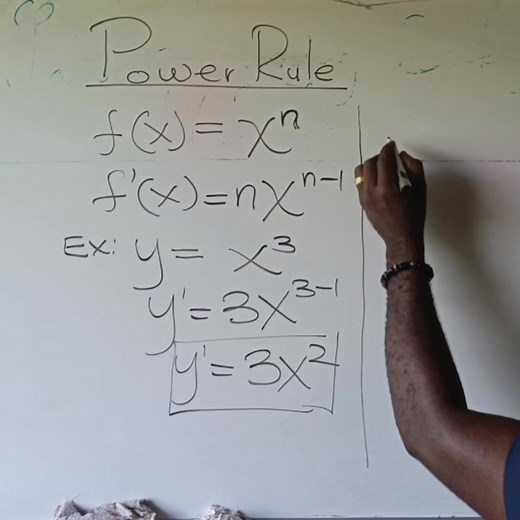 Power Rule
f(x) = xⁿ
f'(x) = nxⁿ⁻¹
Ex: y = x³
y' = 3x³⁻¹
y' = 3x²